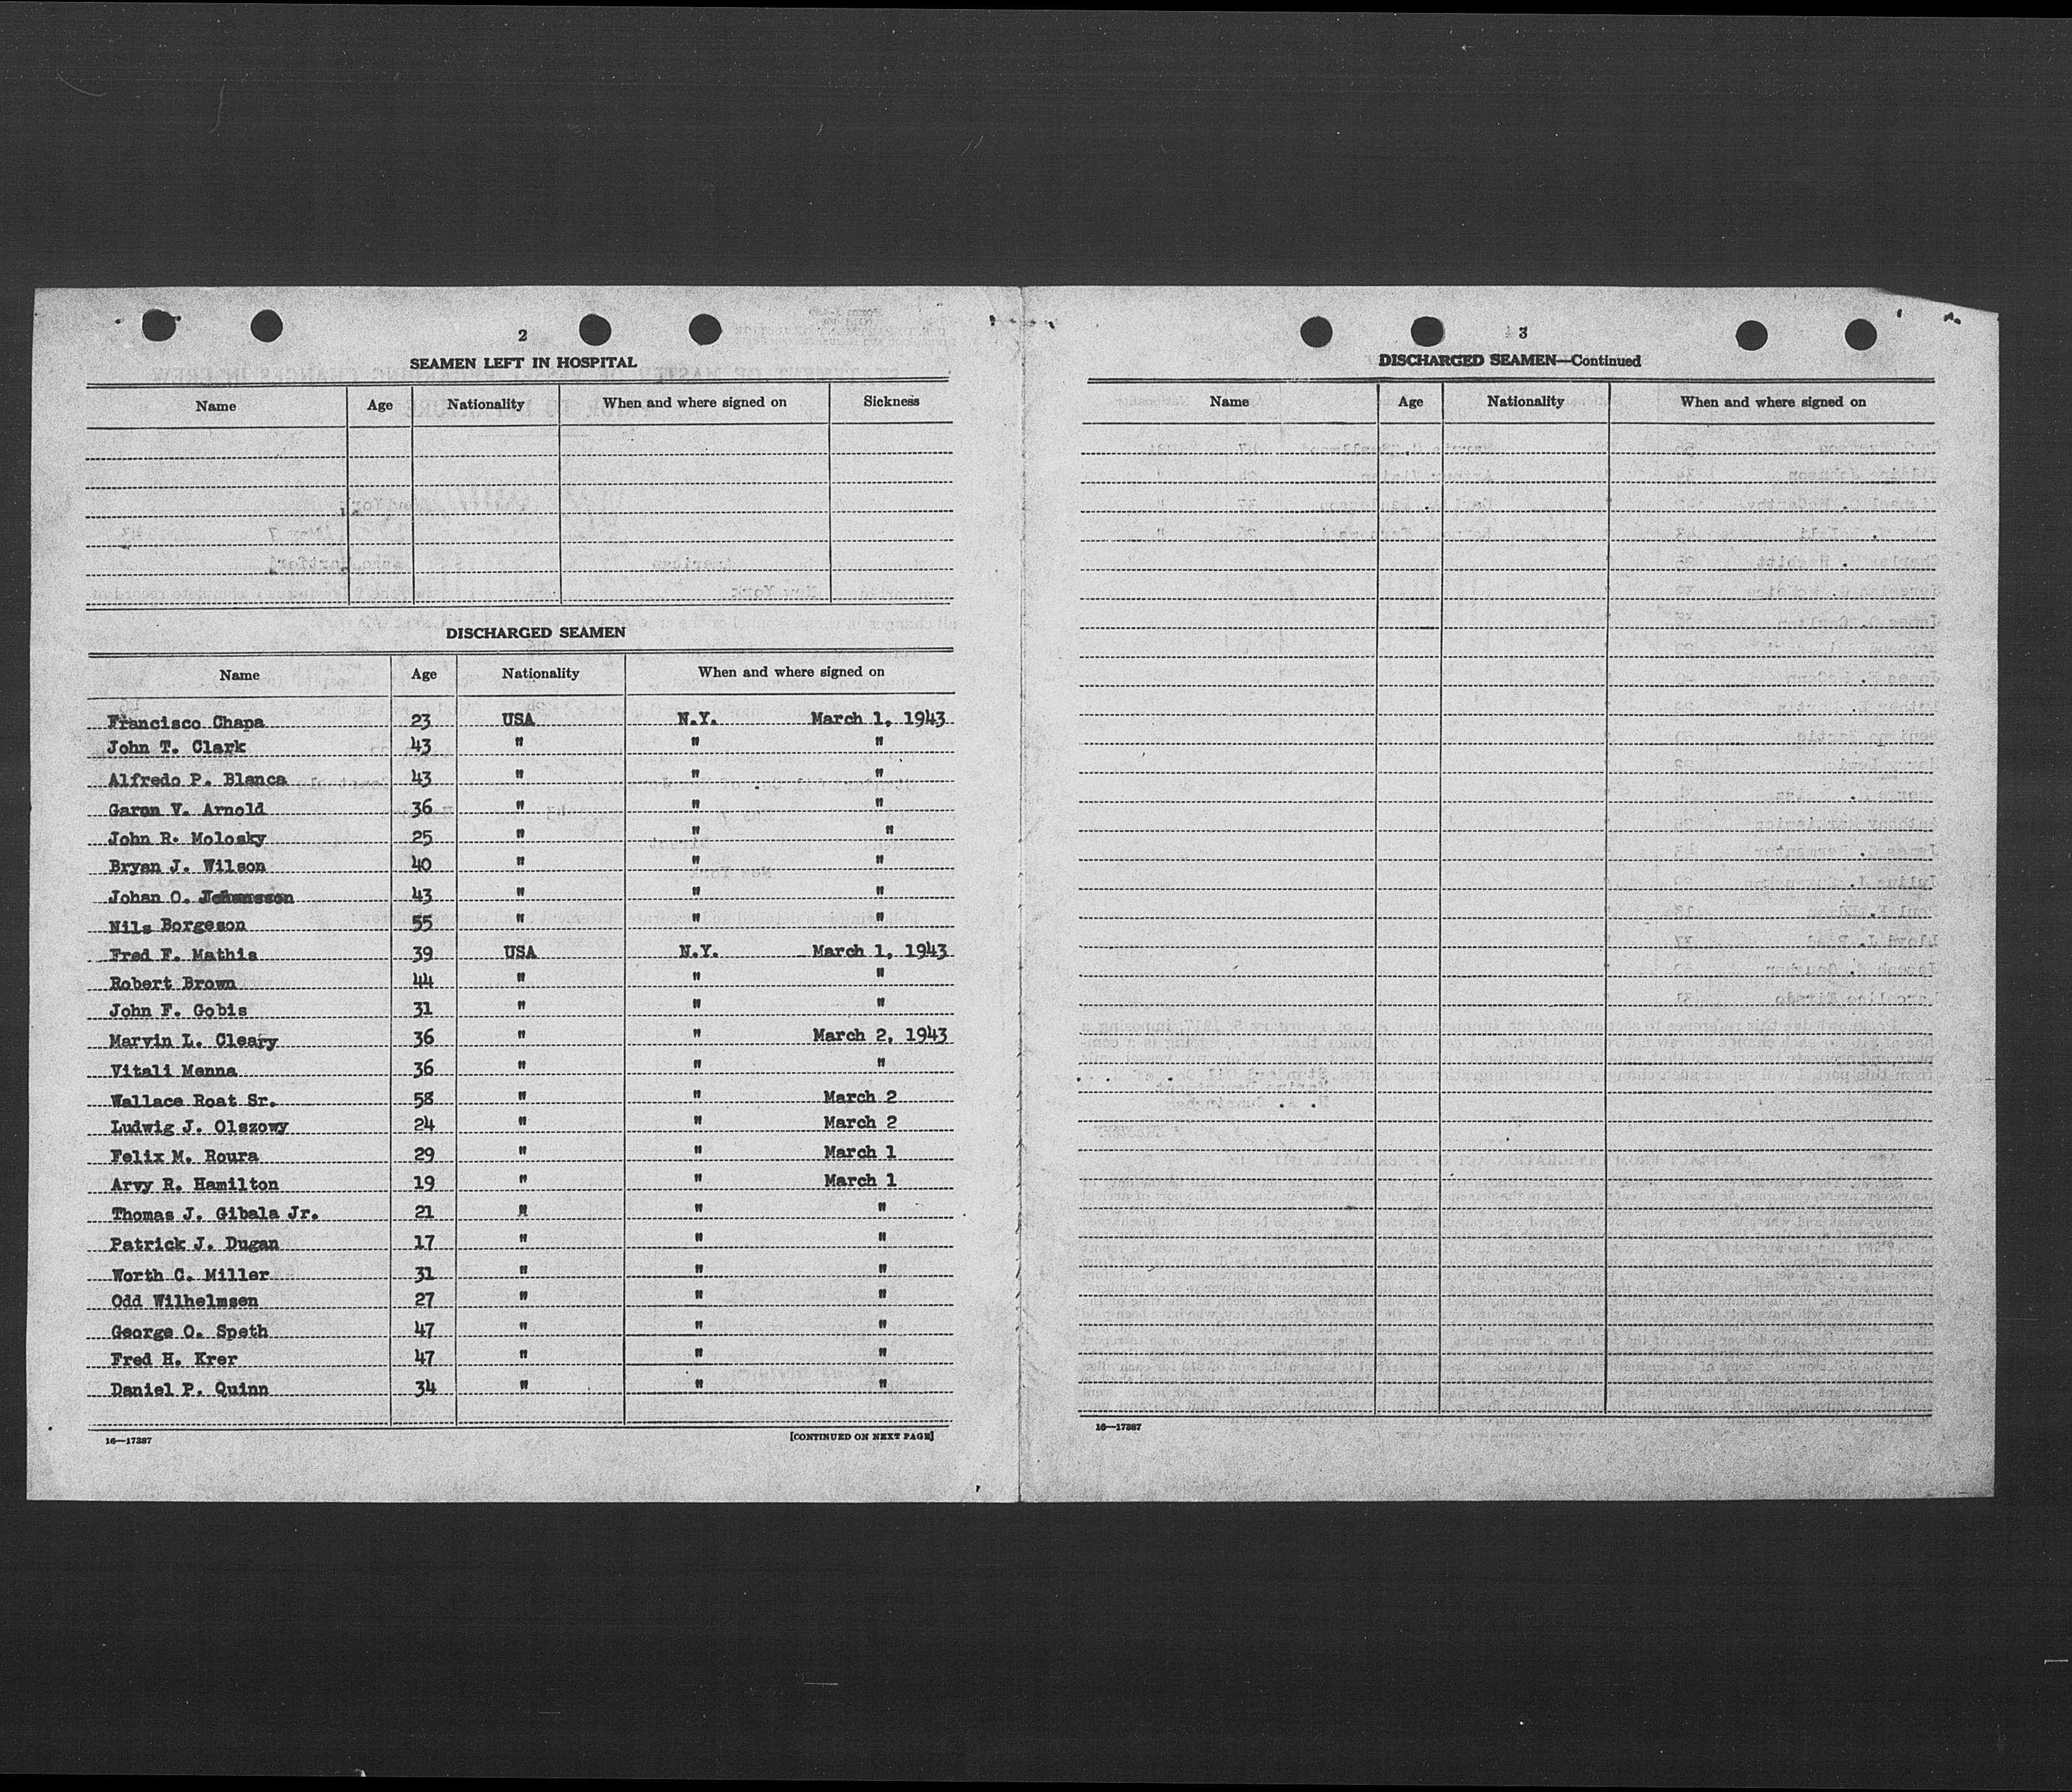 2
SEAMEN LEFT IN HOSPITAL
Name Age Nationality When and where signed on Sickness
DISCHARGED SEAMEN
Name Age Nationality When and where signed on
Francisco Chapa 23 USA N.Y. March 1, 1943
John T. Clark 43 " " "
Alfredo P. Blanca 43 " " "
Garon V. Arnold 36 " " "
John R. Molosky 25 " " "
Bryan J. Wilson 40 " " "
Johan O. 43 " " "
Nils Borgeson 55 " " "
Fred F. Mathis 39 USA N.Y. March 1, 1943
Robert Brown 44 " " "
John F. Gobis 31 " " "
Marvin L. Cleary 36 " " March 2, 1943
Vitali Menna 36 " " "
Wallace Roat Sr. 58 " " March 2
Ludwig J. Olszowy 24 " " March 2
Felix M. Roura 29 " " March 1
Arvy R. Hamilton 19 " " March 1
Thomas J. Gibala Jr. 21 " " "
Patrick J. Dugan 17 " " "
Worth C. Miller 31 " " "
Odd Wilhelmsen 27 " " "
George O. Speth 47 " " "
Fred H. Krer 47 " " "
Daniel P. Quinn 34 " " "
16—17387 [CONTINUED ON NEXT PAGE]
3
DISCHARGED SEAMEN—Continued
Name Age Nationality When and where signed on
16—17387